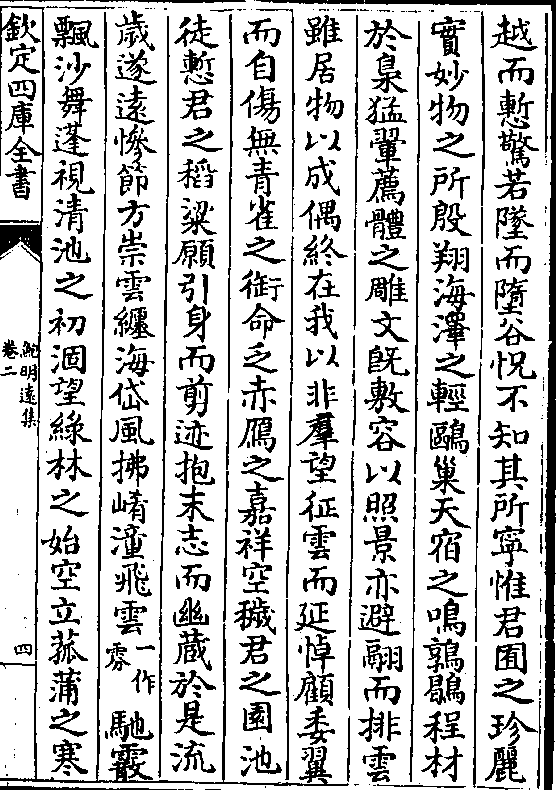 越而慙驚若墜而墮谷怳不知其所寧惟君囿之珍麗
實妙物之所殷翔海澤之輕鷗巢天宿之鳴鶉鶡程材
於梟猛翬薦體之雕文旣敷容以照景亦避翮而排雲
雖居物以成偶終在我以非羣望征雲而延悼顧委翼
而自傷無青雀之銜命乏赤鴈之嘉祥空穢君之園池
徒慙君之稻粱願引身而剪迹抱末志而幽藏於是流
歲遂遠慘節方崇雲纏海岱風拂崤潼飛雲一作雰馳霰
飄沙舞蓬視清池之初涸望綠林之始空立菰蒲之寒
欽定四庫全書
鮑明遠集
卷二
四